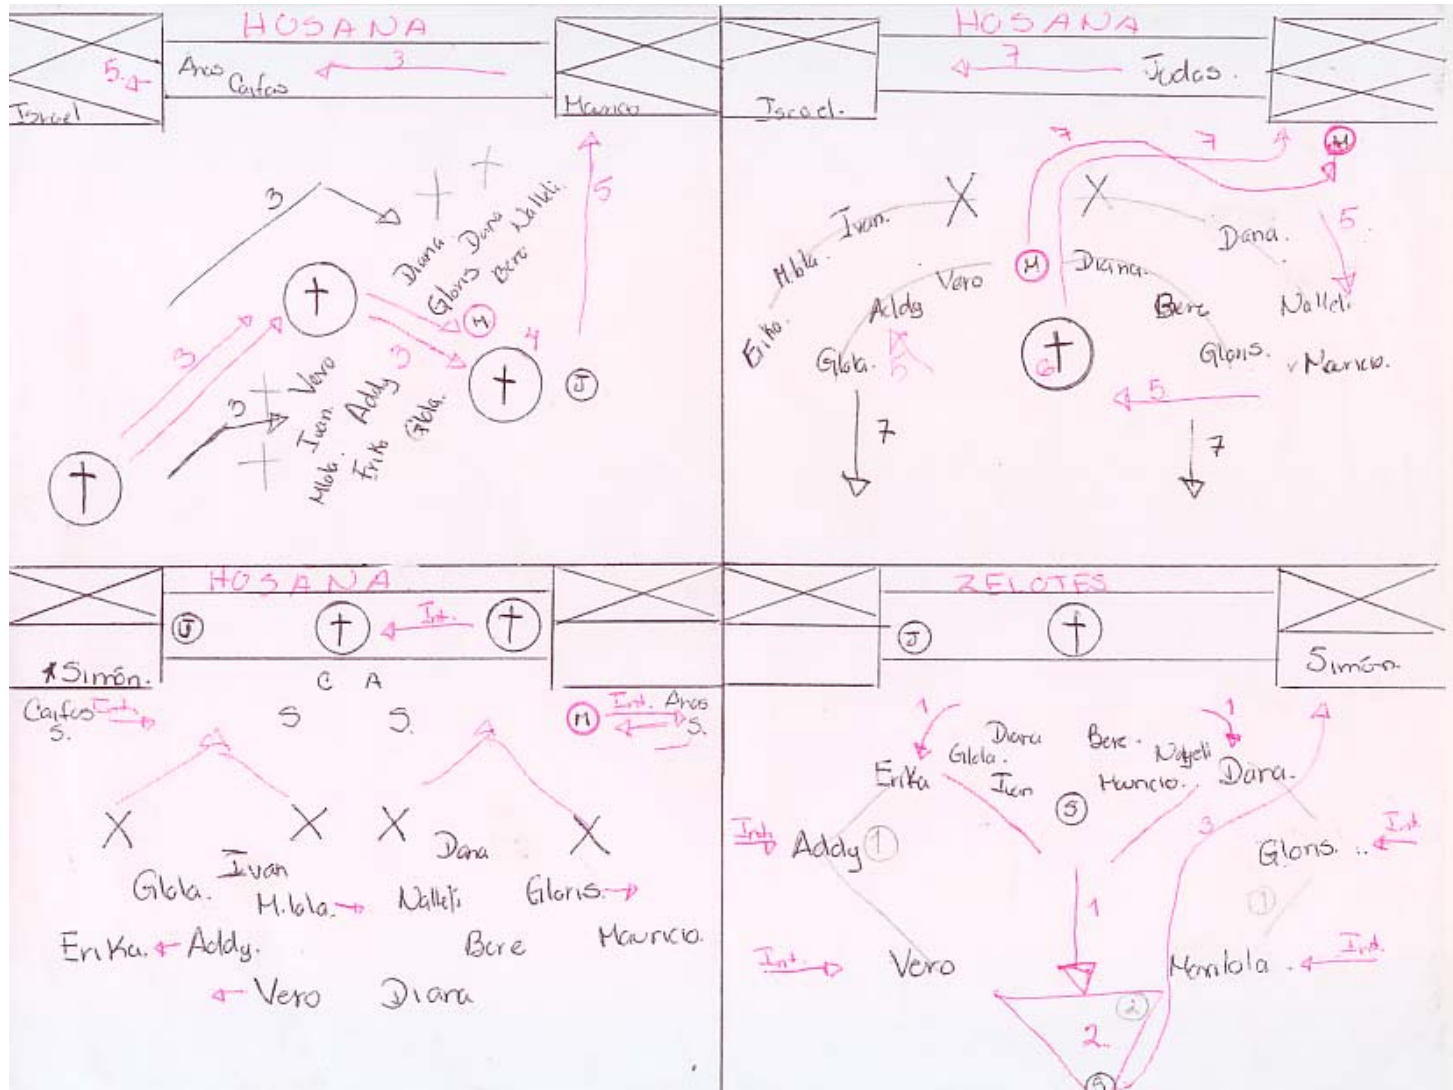 HOSANA
3
5.
Anas
Caifas
Israel
Mauricio
3
5
Diana.
Dana
Nalleli.
Gloris
Bere
M
4
3
3
Vero
3
Ivan.
Addy
Mlola.
Erika
Glola.
J
HOSANA
7
Judas.
Israel.
7
7
M
Ivan.
M.lola.
5
Dana.
Vero
M
Diana.
Addy
Bere
Nalleli
Erika.
Glola.
5
6
Gloris.
Mauricio.
5
7
7
HOSANA
J
Int.
Simón.
C A
Caifas
Int.
S.
S
S.
M
Int.
Anas
S.
Dana
Ivan
Glola.
M.lola.
Nalleli
Gloris.
Erika.
Addy.
Bere
Mauricio.
Vero
Diana
ZELOTES
J
Simón.
1
1
Diana
Bere.
Glola.
Nayeli
Erika
Ivan
Mauricio.
Dana.
S
Int.
Addy
1
3
Gloris.
Int.
1
1
Int.
Vero
Marilola.
Int.
2
2..
S